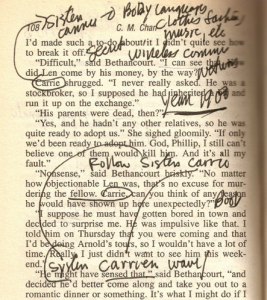 Sister
108
C. M. Chan
I'd made such a to-do about it I didn't quite see how
to break it off.
"Difficult," said Bethancourt. "I can see that
did Len come by his money, by the way
Carrie shrugged. "I never really asked. He was a
stockbroker, so I supposed he had inherited and
run it up on the exchange."
year 1900
"His parents were dead, then?"
"Yes, and he hadn't any other relatives, so he was
quite ready to adopt us." She sighed gloomily. "If only
we'd been ready to adopt him. God, Phillip, I still can't
believe one of them would kill him. And it's all my
fault."
Follow Sister Carrie
"Nonsense," said Bethancourt briskly. "No matter
how objectionable Len was, that's no excuse for mur-
dering the fellow. Carrie, can you think of any
would have shown up here unexpectedly?"
I suppose he must have gotten bored in town and
decided to surprise me. He was impulsive like that. I
told him on Thursday that you were coming and that
I'd be doing Arnold's tours, so I wouldn't have a lot of
time. Really, I just didn't want to see him this week-
end."
"He might have sensed that," said Bethancourt, "and
decided he'd better come along and take you out to a
romantic dinner or something. It's what I might do if I